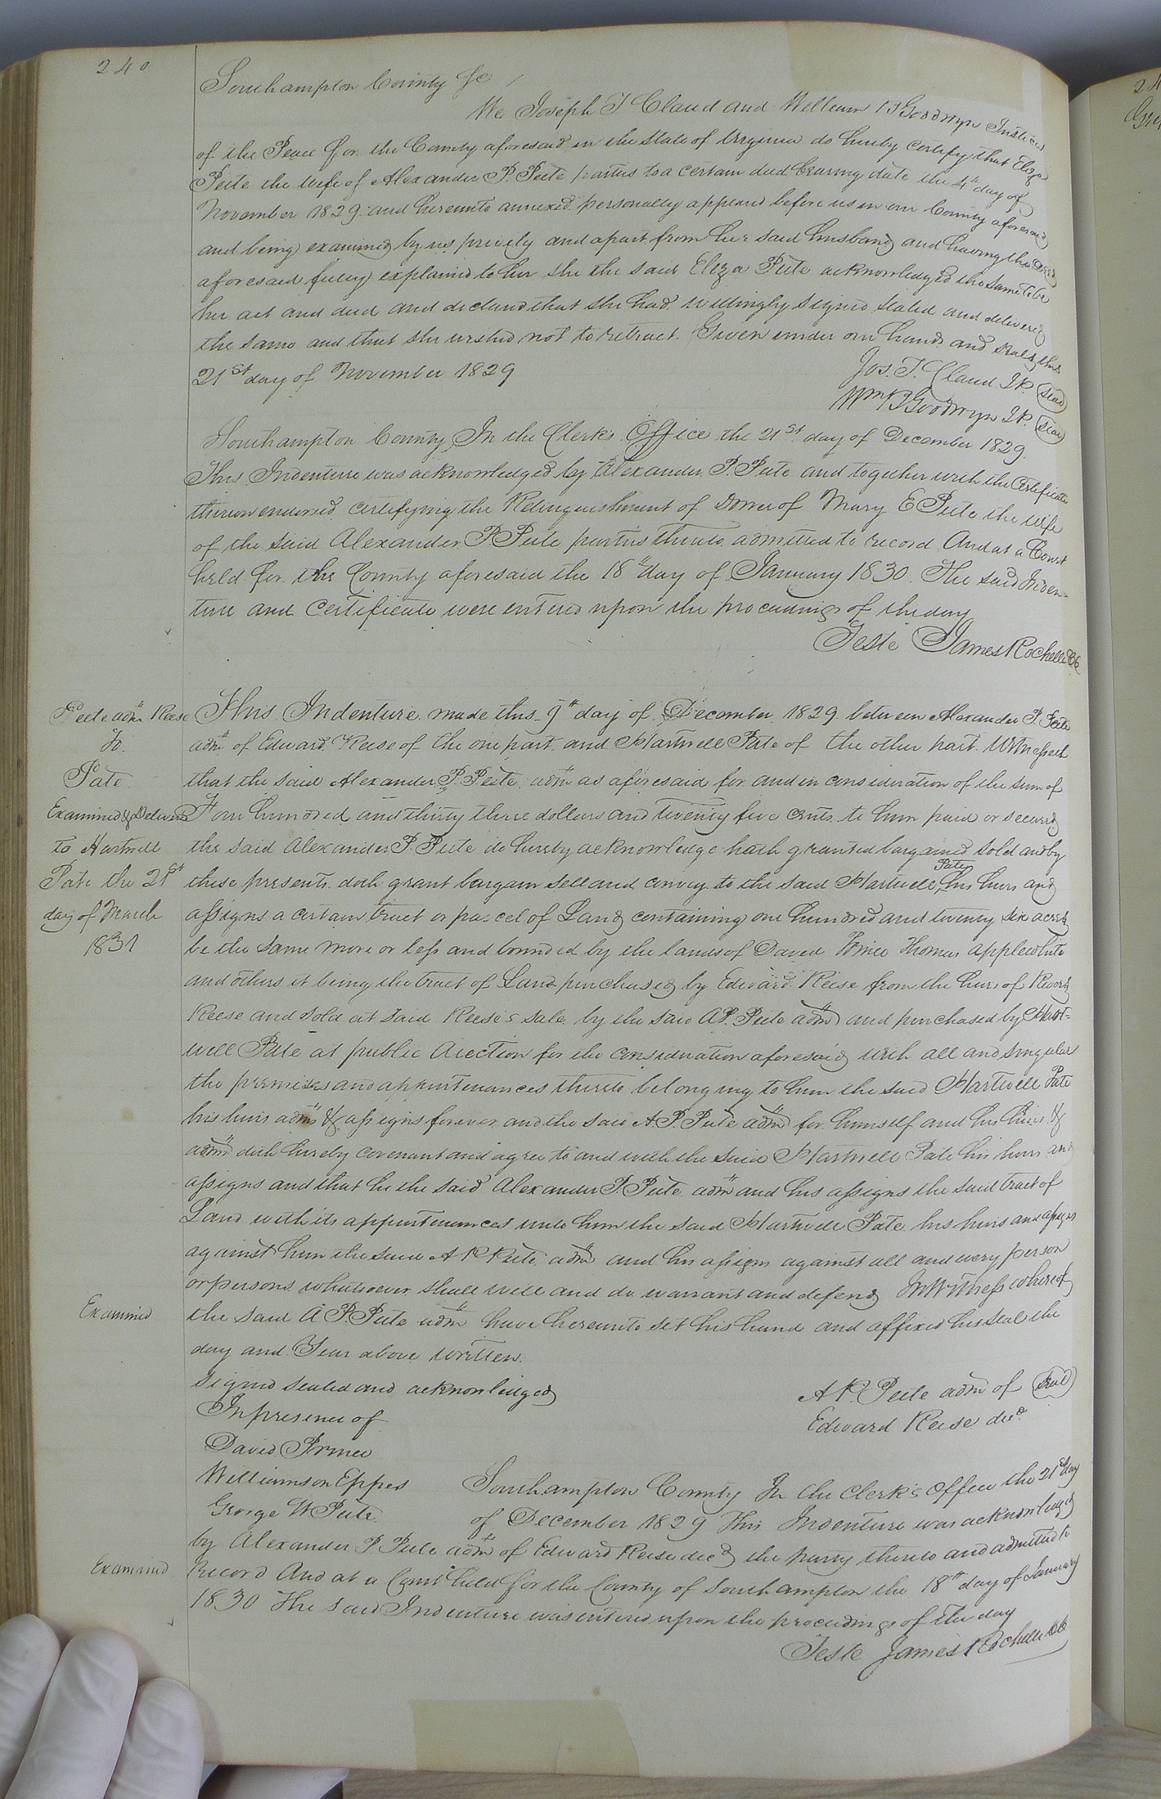 240
Southampton County Sc
We Joseph T Claud and William B Goodwyn Justices
of the Peace for the County aforesaid in the State of Virginia do hereby certify that Eliza
Peete the Wife of Alexander P. Peete parties to a certain deed bearing date the 4th day of
November 1829 and hereunto annexed personally appeared before us in our County aforesaid
and being examined by us privily and apart from her said husband and having the deed
aforesaid fully explained to her she the said Eliza Peete acknowledged the same to be
her act and deed and declared that she had willingly signed sealed and delivered
the same and that she wished not to retract. Given under our hands and seals this
21st day of November 1829
Jos. T. Claud J.P. (Seal)
Wm B Goodwyn J.P. (Seal)
Southampton County, In the Clerk's Office the 21st day of December 1829.
This Indenture was acknowledged by Alexander P. Peete and together with the Certificate
thereon endorsed certifying the Relinquishment of Dower of Mary E Peete the wife
of the said Alexander P Peete parties thereto admitted to record And at a Court
held for the County aforesaid the 18th day of January 1830. The said Inden-
ture and Certificate were entered upon the proceedings of the day
Teste James Rochelle CC
Peete adm Reese
To.
Pate
Examined & Delivered
to Hartwell
Pate the 21st
day of March
1831
This Indenture made this 9th day of December 1829 between Alexander P. Peete
adm of Edward Reese of the one part and Hartwell Pate of the other part. Witnesseth
that the said Alexander P. Peete adm as aforesaid for and in consideration of the sum of
Four hundred and thirty three dollars and twenty five cents to him paid or secured
the said Alexander P. Peete do hereby acknowledge hath granted bargained sold and by
these presents doth grant bargain sell and convey to the said Hartwell Pate his heirs and
assigns a certain tract or parcel of Land containing one hundred and twenty six acres
be the same more or less and bounded by the lands of David Prince Thomas Applewhite
and others it being the tract of Land purchased by Edward Reese from the heirs of
Reese and sold at said Reese's sale by the said A.P. Peete adm and purchased by Hart-
well Pate at public Auction for the consideration aforesaid with all and singular
the premises and appurtenances thereto belonging to him the said Hartwell Pate
his heirs adms & assigns forever and the said A.P. Peete adm for himself and his heirs &
adm doth hereby covenant and agree to and with the said Hartwell Pate his heirs and
assigns and that he the said Alexander P Peete adm and his assigns the said tract of
Land with its appurtenances unto him the said Hartwell Pate his heirs and assigns
against him the said A P Peete adm and his assigns against all and every person
or persons whatsoever shall will and do warrant and defend In Witness whereof
the said A P. Peete adm have hereunto set his hand and affixed his seal the
day and Year above written.
Examined
Signed sealed and acknowledged
In presence of
David Prince
Williamson Eppes
George W Peete
A P. Peete adm of (Seal)
Edward Reese decd
Southampton County In the Clerk's Office the 21st day
of December 1829 This Indenture was acknowledged
by Alexander P Peete adm of Edward Reese decd the party thereto and admitted to
Record And at a Court held for the County of Southampton the 18th day of January
1830 The said Indenture was entered upon the proceedings of the day
Examined
Teste James Rochelle CC